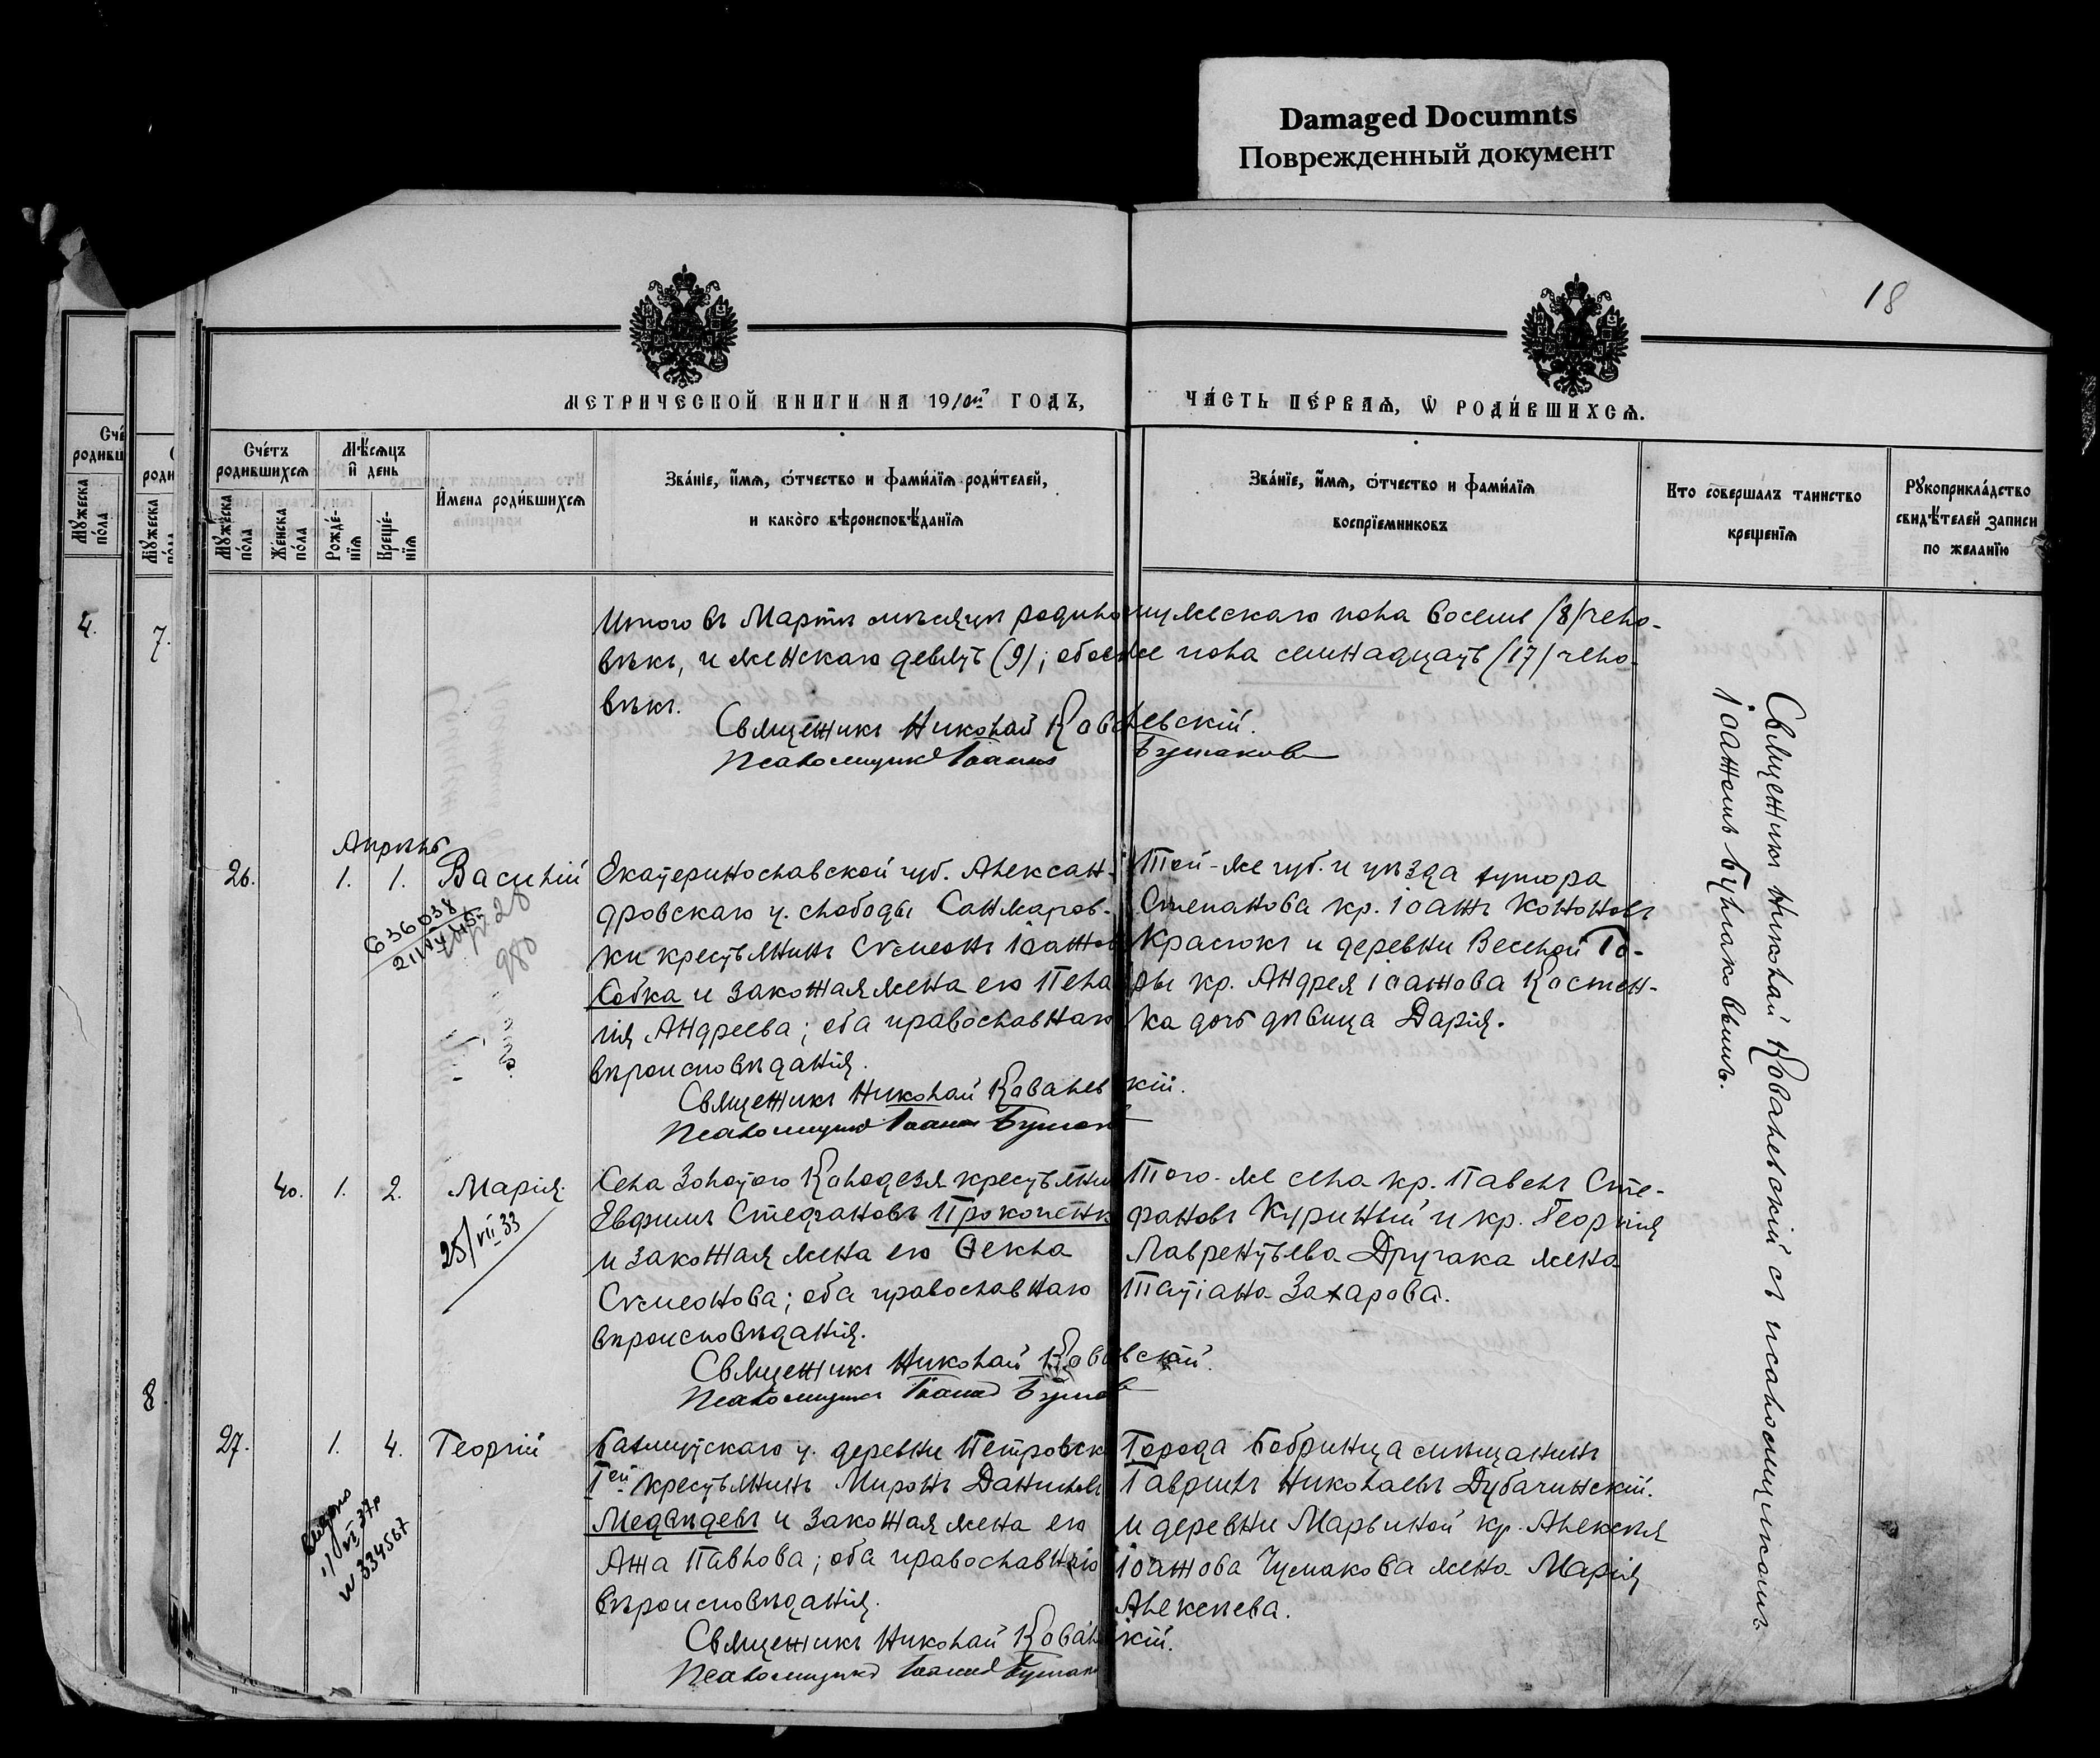 Damaged Documnts
Поврежденный документ
18
МЕТРИЧЕСКОЙ КНИГИ НА 19 ГОДЪ,
ЧАСТЬ ПЕРВАЯ, Ѡ РОДИВШИХСЯ.
Счетъ родившихся
Мѣсяцъ и день
Имена родившихся
Званіе, имя, отчество и фамилія родителей,
и какого вѣроисповѣданія
Званіе, имя, отчество и фамилія
воспріемниковъ
Кто совершалъ таинство
крещенія
Рукоприкладство
свидѣтелей записи
по желанію
Мужеска пола
Женска пола
Рожденія
Крещенія
4.
7.
8
Итого въ Мартѣ мѣсяцѣ родилось мужескаго пола восемь /8/ чело-
вѣкъ, и женскаго девять (9); обоего пола семнадцать /17/ чело-
вѣкъ.
Священникъ Николай Ковалевскій.
Псаломщикъ Іоаннъ
Апрѣль
26. 1. 1. Василій
Екатеринославской губ. Алексан-
дровскаго у. слободы Санжаров-
ки крестьянинъ Сѵмеонъ Іоанновъ
Собка и законная жена его Пела-
гія Андреева; оба православнаго
вѣроисповѣданія.
Той-же губ. и уѣзда хутора
Степанова кр. Іоаннъ Кононовъ
Краснокъ и деревни Веселой Го-
ры кр. Андрея Іоаннова Костен-
ка дочь дѣвица Дарія.
636038
980
Священникъ Николай Ковалевскій.
Псаломщикъ Іоаннъ
40. 1. 2. Марія.
25/VII 33
Села Золотого Колодезя крестьянинъ
Евфимъ Стефановъ Прокопенко
и законная жена его Ѳекла
Сѵмеонова; оба православнаго
вѣроисповѣданія.
Того-же села кр. Павелъ Сте-
фановъ Куриный и кр. Георгія
Лаврентьева Другака жена
Татіана Захарова.
Священникъ Николай Ковалевскій.
Псаломщикъ Іоаннъ
27. 1. 4. Георгій
Бахмутскаго у. деревни Петровск
1ой крестьянинъ Миронъ Даниловъ
Медвѣдевъ и законная жена его
Анна Павлова; оба православнаго
вѣроисповѣданія.
Города Бобринца мѣщанинъ
Гавріилъ Николаевъ Дубачинскій.
и деревни Марьиной кр. Алексѣя
Іоаннова Чумакова жена Марія
Алексѣева.
N 334567
Священникъ Николай Ковалевскій.
Псаломщикъ Іоаннъ
Священникъ Николай Ковалевскій съ псаломщикомъ
Іоанномъ